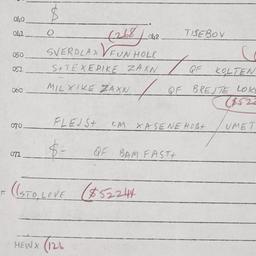 040 $
042 0 (268) 048 TISEBOV
050 SVERDLAX FUN HOLE
052 S+TEXEDIKE ZAXN / QF KOLTEN
060 MILXIKE ZAXN / QF BRESTE LOK
($522
070 FLEJS+ CM XASENEHOB+ / UMET
072 $- QF BAM FAST+
((STO, LOVE ($52244
HEWX (126